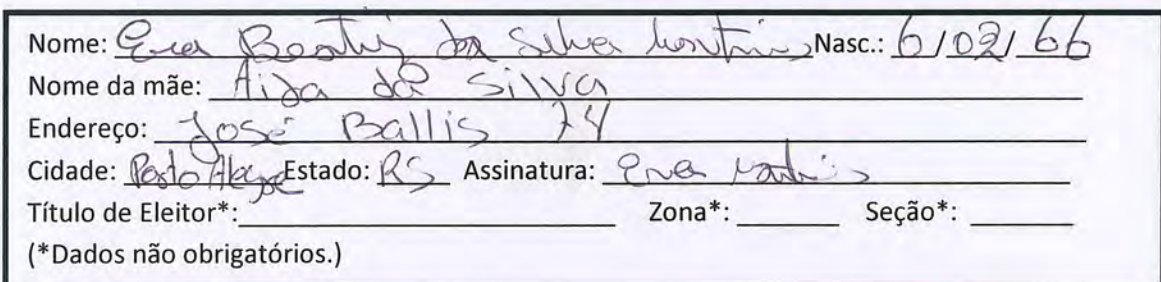 Nome: Eva Beatriz da Silva Martins Nasc.: 6/02/66
Nome da mãe: Aida da Silva
Endereço: José Ballis 74
Cidade: Porto Alegre Estado: RS Assinatura: Eva Martins
Título de Eleitor*: Zona*: Seção*:
(*Dados não obrigatórios.)